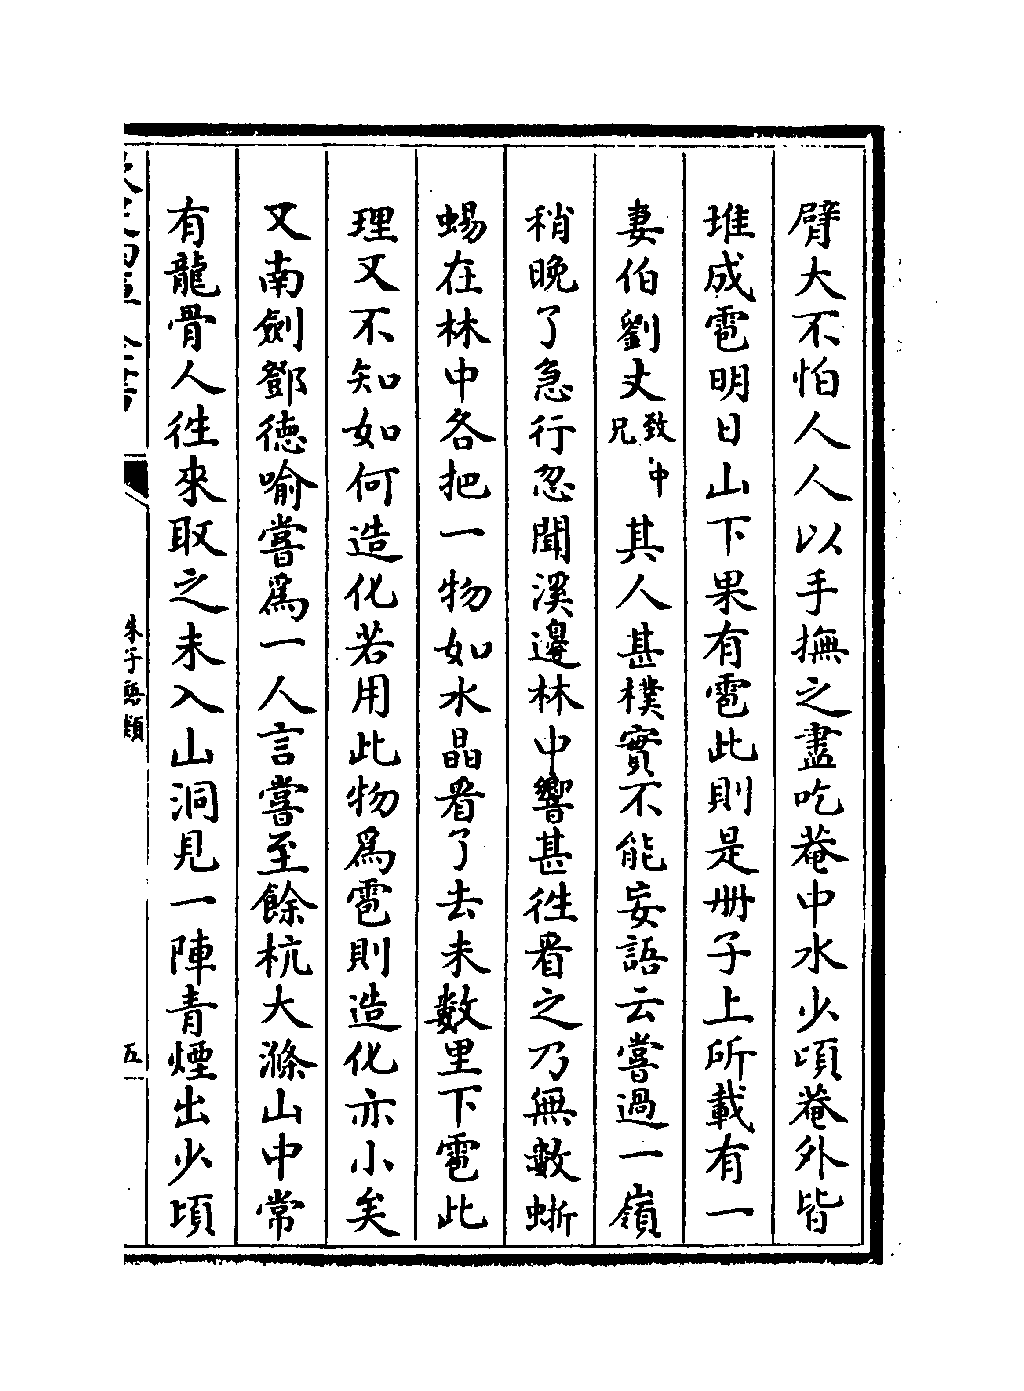 臂大不怕人人以手撫之盡吃菴中水少頃菴外皆
堆成雹明日山下果有雹此則是冊子上所載有一
妻伯劉丈致中兄其人甚樸實不能妄語云嘗過一嶺
稍晚了急行忽聞溪邊林中響甚徃看之乃無數蜥
蜴在林中各把一物如水晶看了去未數里下雹此
理又不知如何造化若用此物爲雹則造化亦小矣
又南劍鄧德喻嘗爲一人言嘗至餘杭大滌山中常
有龍骨人徃來取之未入山洞見一陣青煙出少頃
朱子語類
五